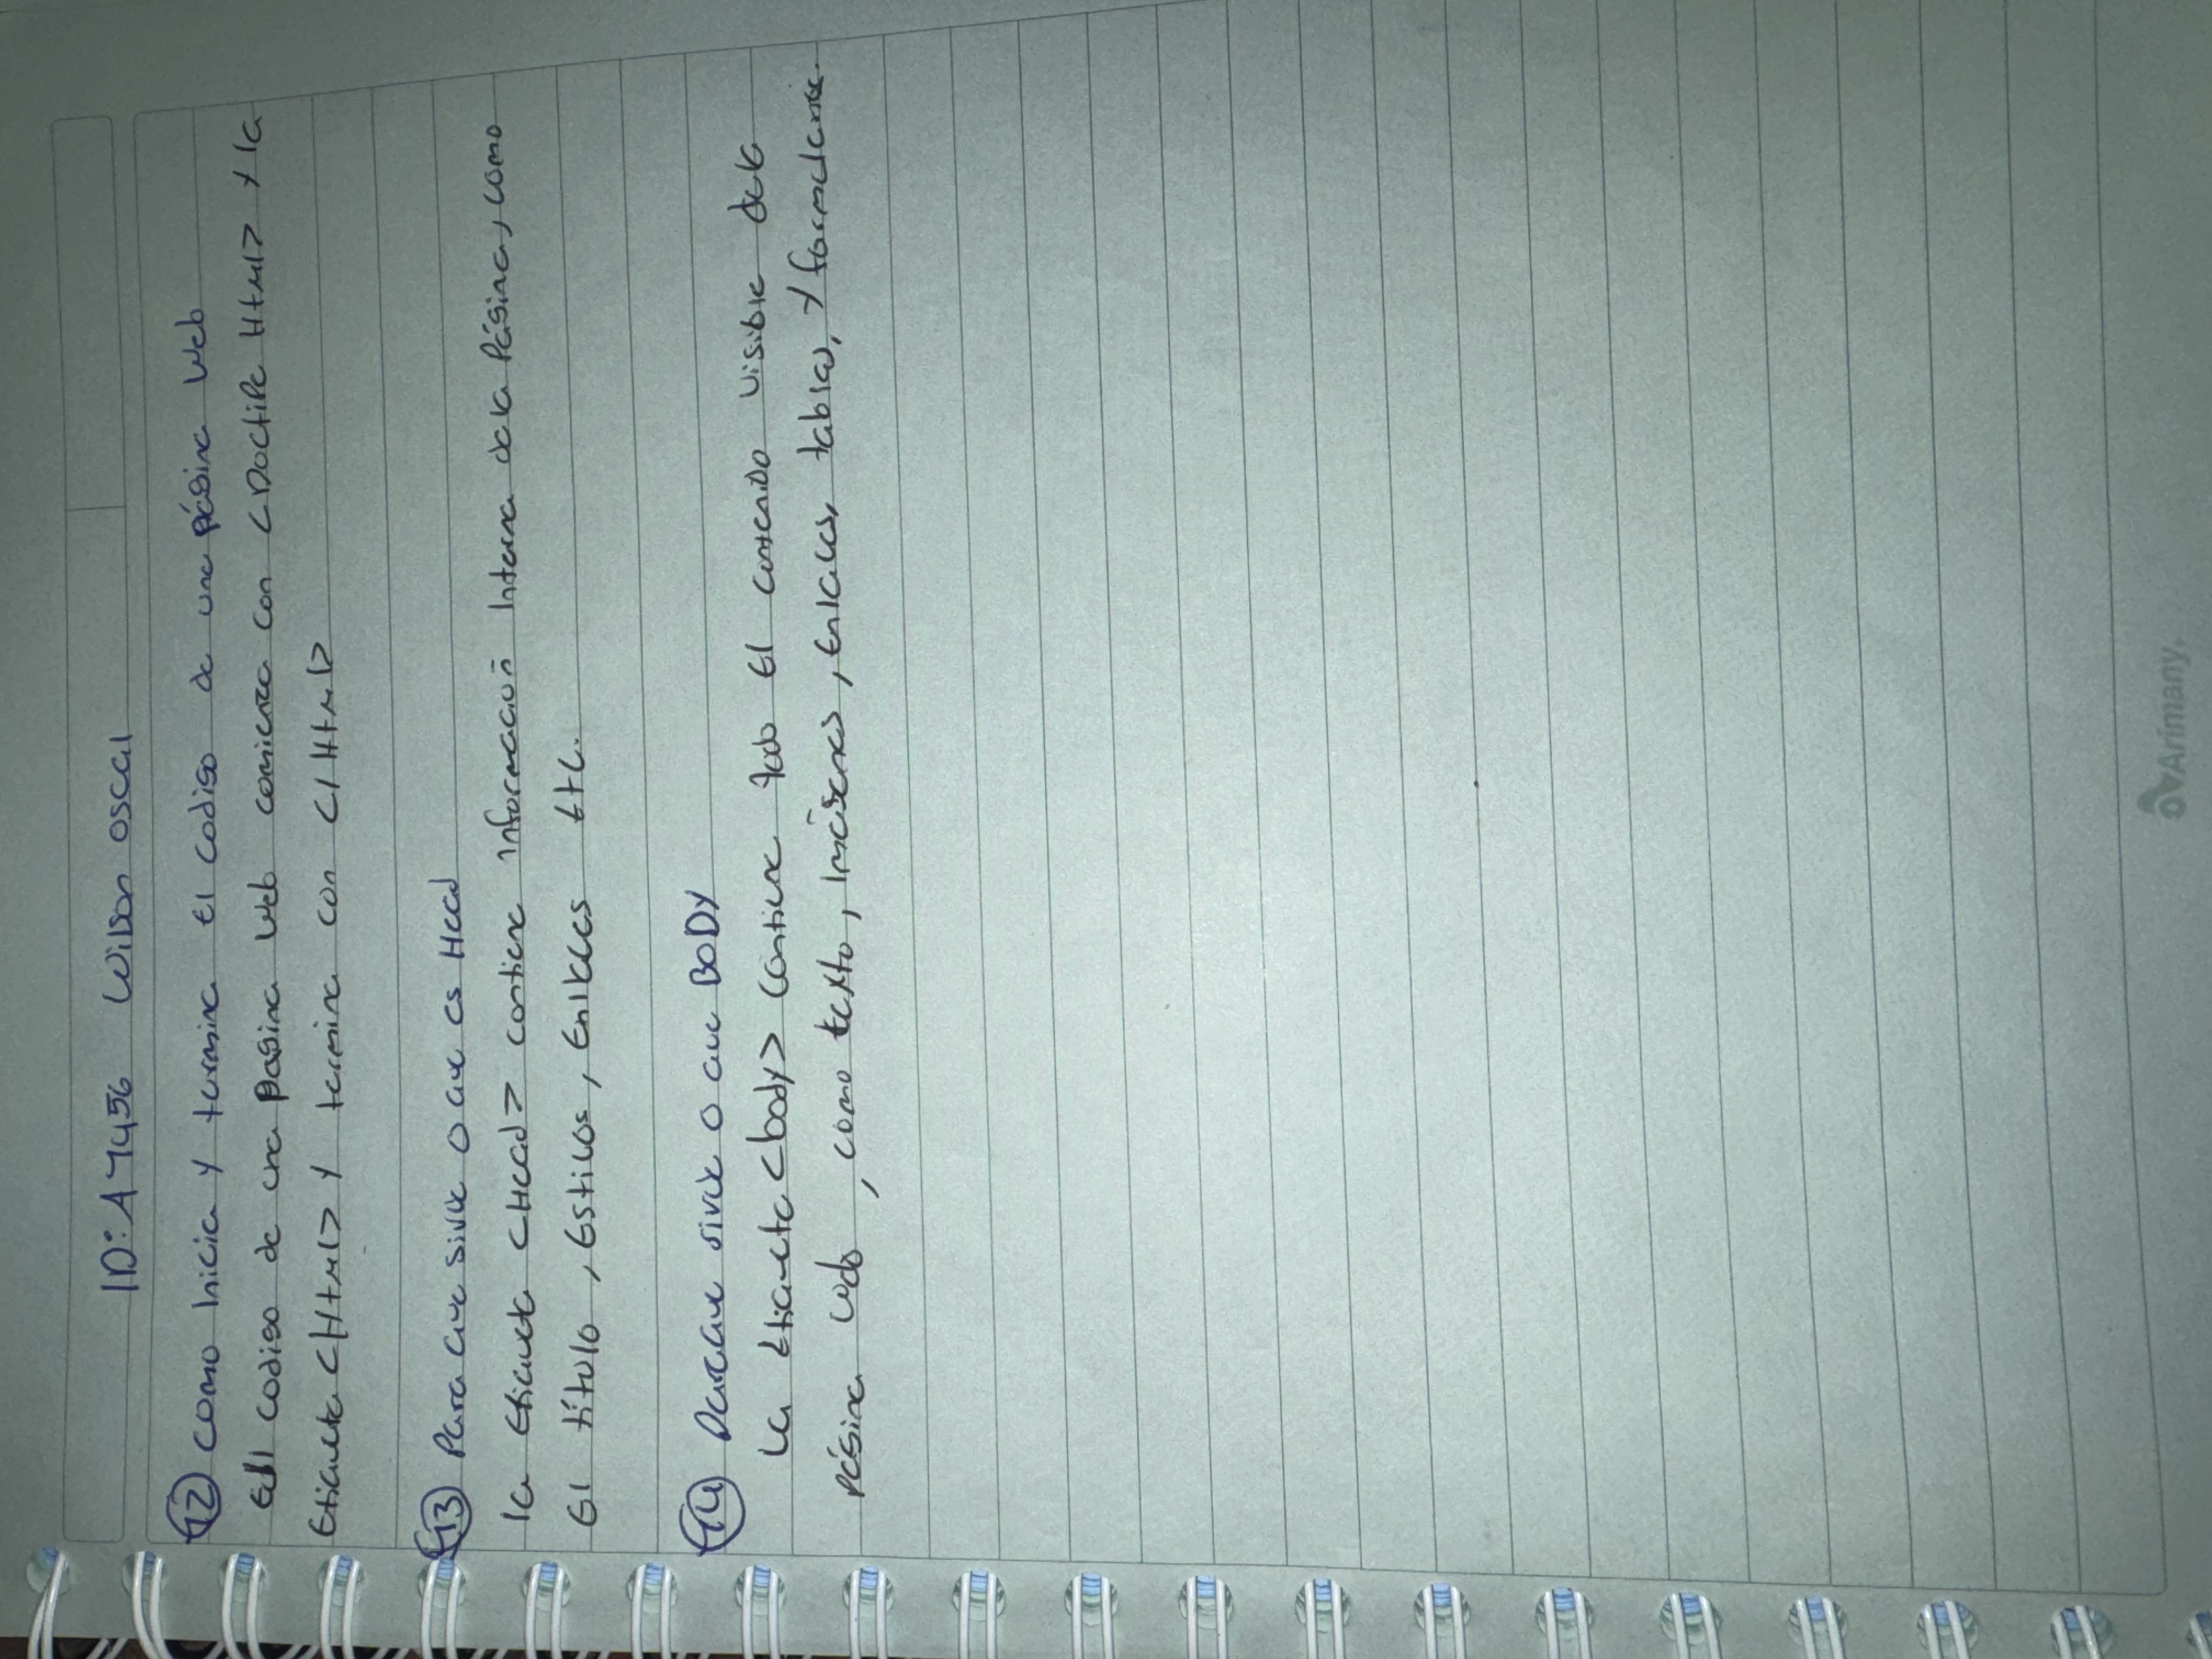 ID: A7456 Wilson Oscal
12 Como Inicia y termina el codigo de una página Web
El codigo de una pagina Web comienza con <Doctipe Html> y la
Etiqueta <Html> y termina con </Html>
13 Para que sirve o que es Head
la etiqueta <Head> contiene información Interna de la Página, como
El título, Estilos, Enlaces Etc.
14 Para que sirve o que BODY
La Etiqueta <body> contiene todo El contenido visible de la
página web, como texto, Imágenes, Enlaces, tablas, y formularios.
Arimany.